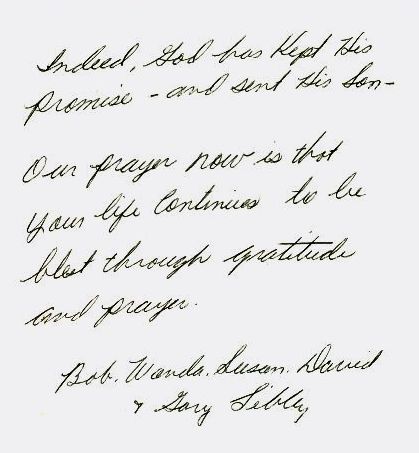 Indeed, God has Kept His
Promise - and sent His Son -
Our prayer now is that
your life Continues to be
blest through gratitude
and prayer.
Bob. Wanda. Susan. David
& Gary Sibley